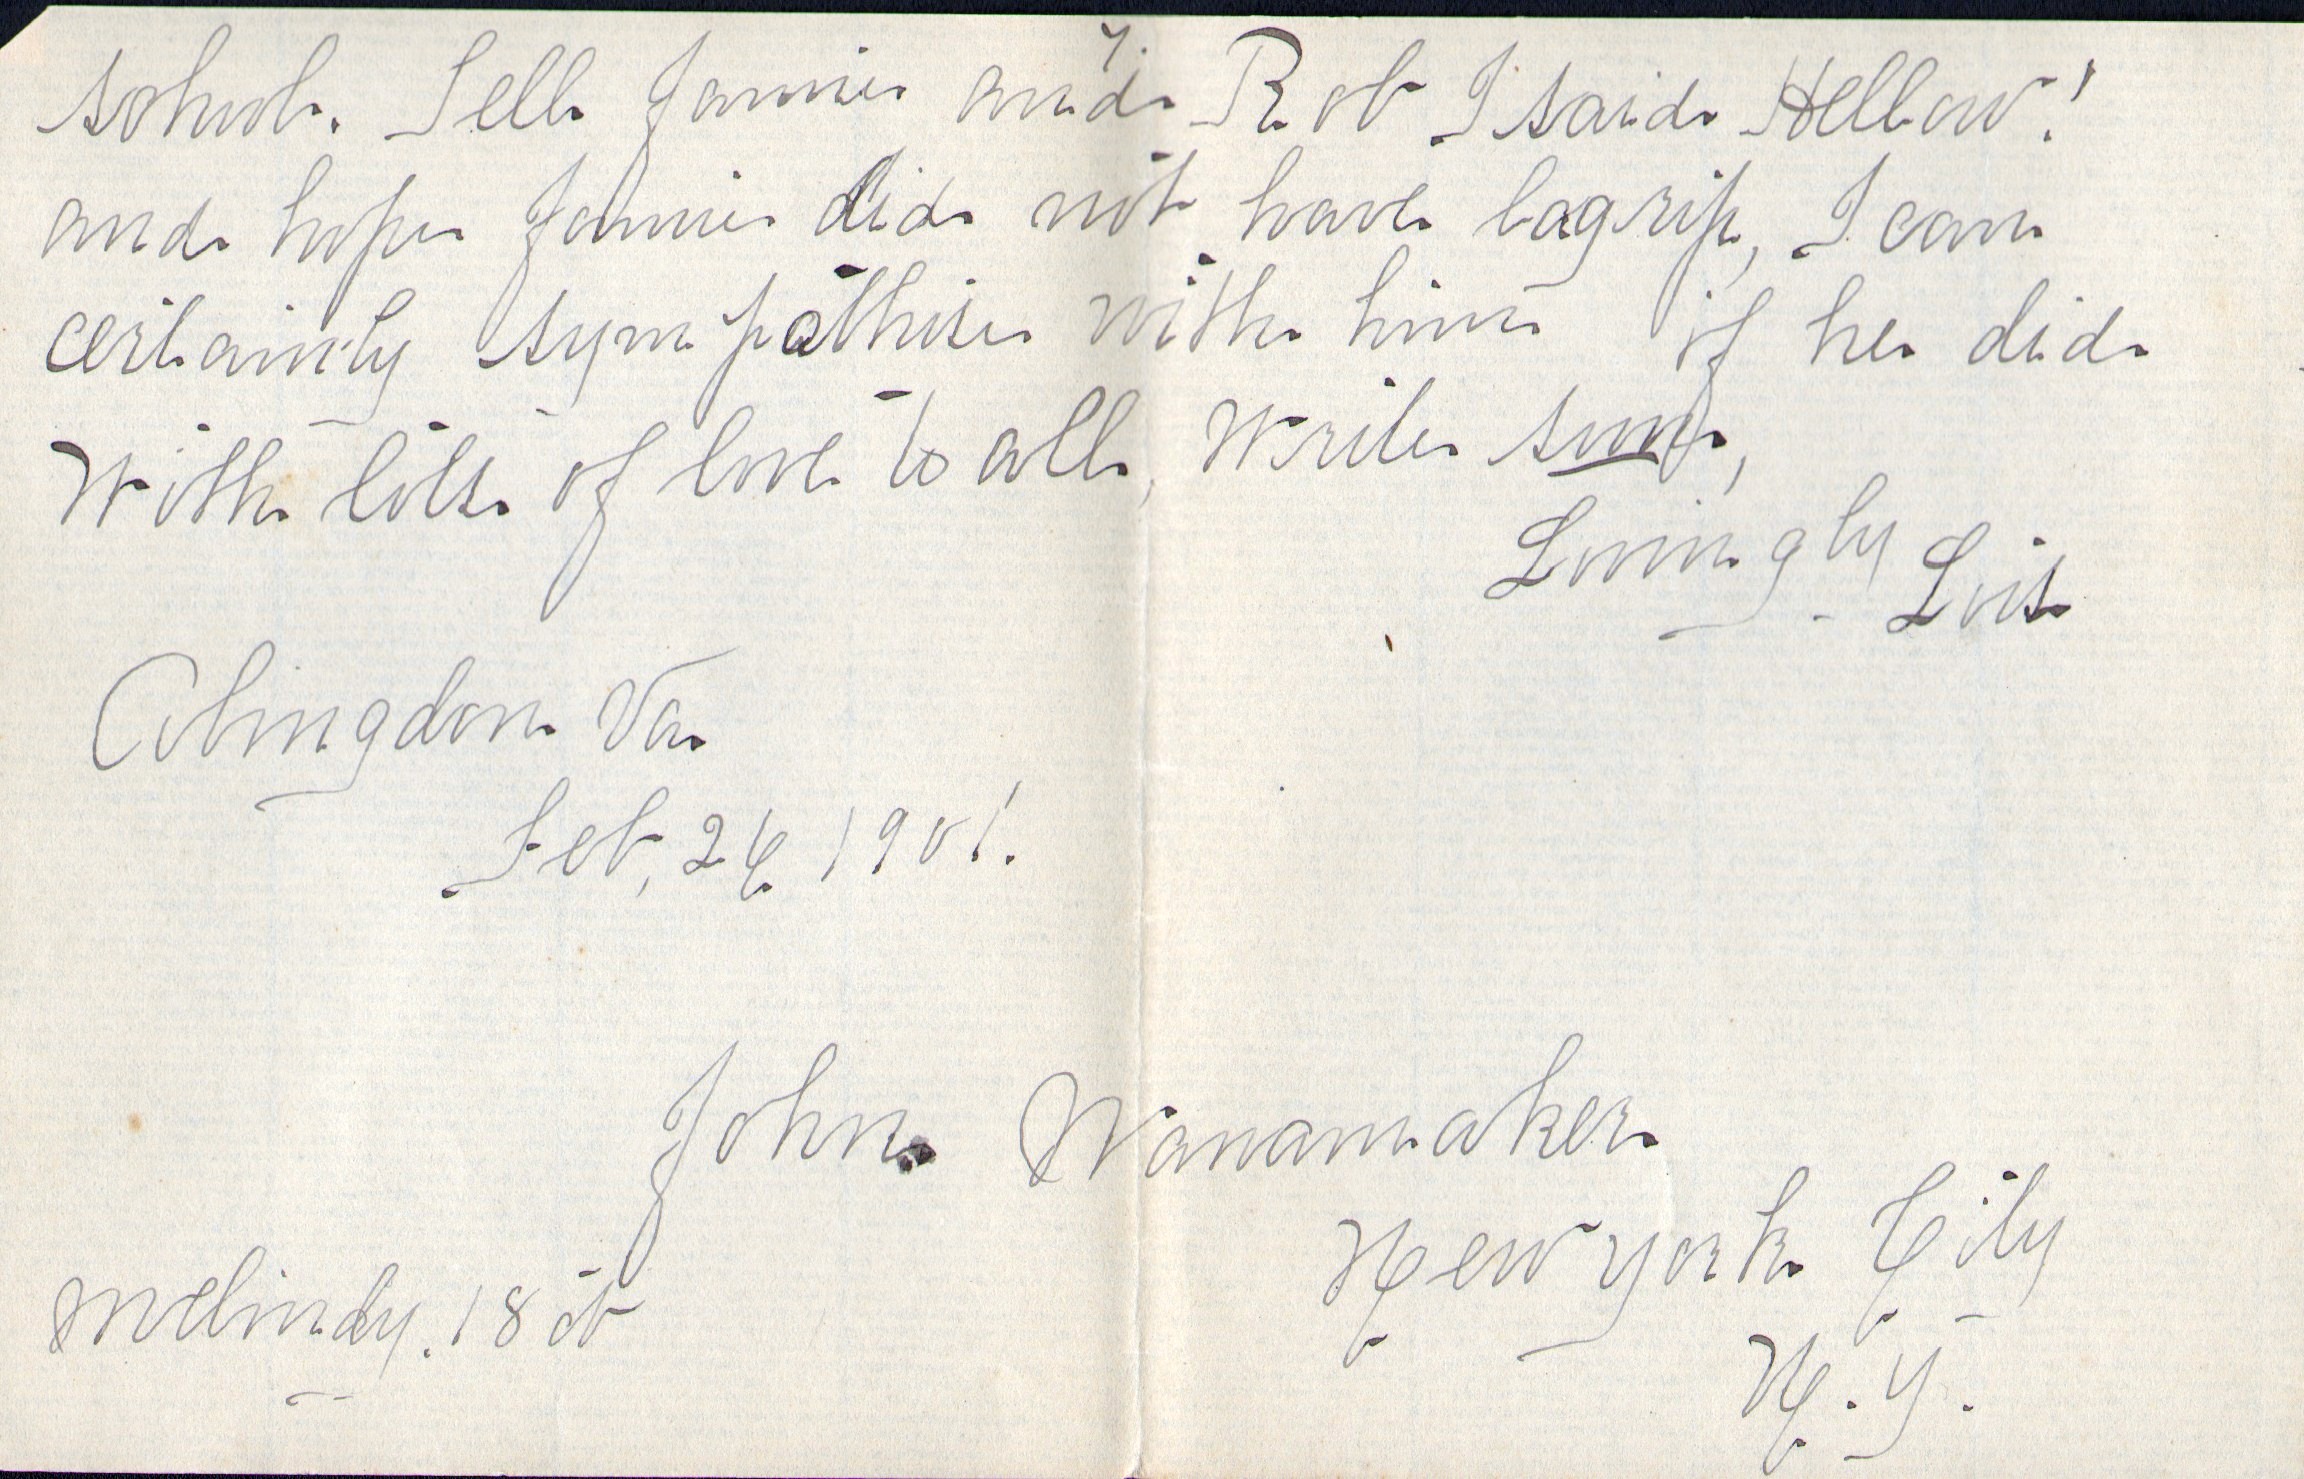 7.
school. Tell Jamie and Rob I said Hellow!
and hope Jamie did not have lagrip, I can
certainly sympathise with him if he did
With lots of love to all, write soon,
Lovingly Lois
Abingdon Va.
Feb, 26 1901.
John Wanamaker
New York City
N.Y.
Melindy. 18 ct